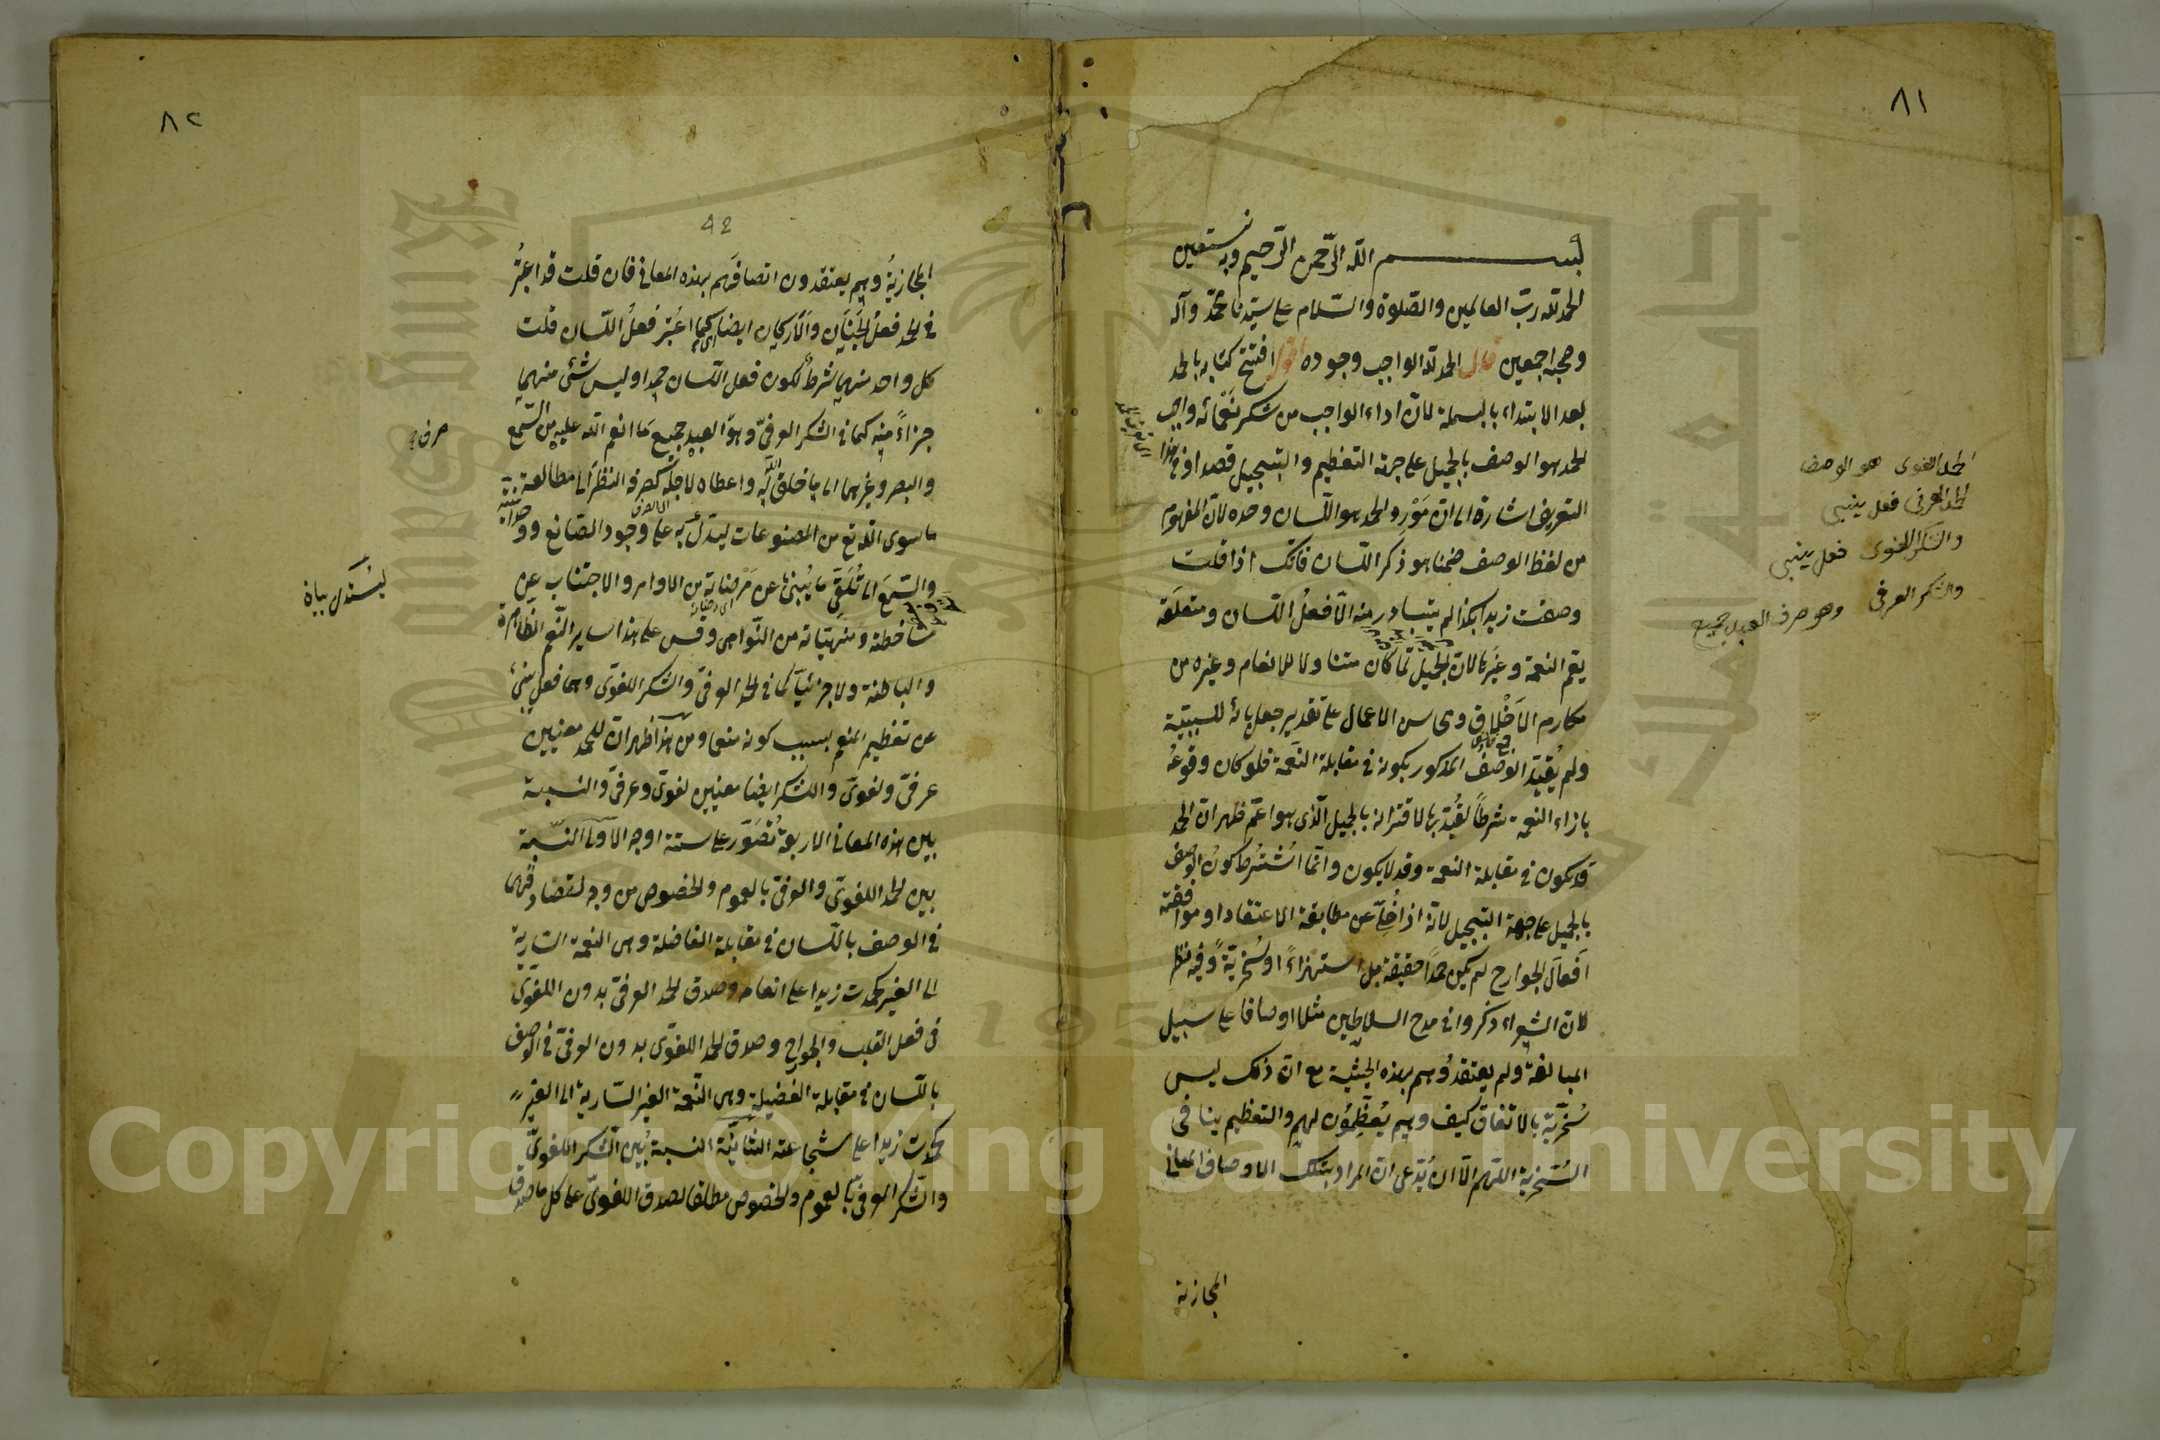 ٨١
بسم الله الرّحمن الرّحيم وبه نستعين
الحمد لله ربّ العالمين والصّلوة والسّلام على سيّدنا محمّد وآله
وصحبه اجمعين قال الحمد لله الواجب وجوده اقول افتتح كتابه بالحمد
بعد الابتداء بالبسملة لانّ اداء الواجب من شكر نعمائه واجب
الحمد هو الوصف بالجميل على جهة التعظيم والتبجيل قصدا وفي هذا
التعريف اشارة الى انّ مَوْرِد الحمد هو اللّسان وحده لانّ المفهوم
من لفظ الوصف ضمنا هو ذكر اللّسان فانّك اذا قلت
وصفت زيدا بكذا لم يتبادر منه الّا فعلُ اللّسان ومتعلّقه
يعمّ النعمة وغيرها لانّ الجميل لمّا كان متناولا للانعام وغيره من
مكارم الاَخْلاق ومحاسن الاعمال على تقدير جعل بائه للسببيّة
ولم يُقيّد الوصف المذكور بكونه في مقابلة النّعمة فلو كان وقوعُه
بازاء النعمة شرطاً لقُيّد بها لاقترانه بالجميل الّذى هو اعمّ فظهر انّ الحمد
قد يكون في مقابلة النعمة وقد لا يكون وانّما اشترط كون الوصف
بالجميل على جهة التبجيل لانّه اذا خلّى عن مطابقة الاعتقاد او موافقة
افعال الجوارح لم يكن حمداً حقيقة بل استهزاءً او سُخريّةً وفيه نظر
لانّ الشعراء ذكروا في مدح السلاطين مثلا اوصافا على سبيل
المبالغة ولم يعتقدوهم بهذه الحيثية مع انّ ذلك ليس
سُخريّة بالاتفاق كيف وهم يُعظّمون لهم والتعظيم ينافى
السُّخريّة اللّهم الّا ان يُدّعى انّ المراد بتلك الاوصاف المعانى
المجازية
الحمد اللغوى هو الوصف
الحمد العرفى فعل ينبى
والشكر اللغوى فعل ينبى
والشكر العرفى وهو صرف العبد جميع
٨٢
42
المجازيّةُ وهم يعتقدون اتصافَهم بهذه المعانى فان قلت قد اعتُبر
في الحمد فعلُ الجَنَان والاركان ايضا كما اعتُبر فعلُ اللّسان قلت
كل واحد منهما شرطٌ لكون فعل اللّسان حمدا وليس شئ منهما
جزاءً منه كما في الشكر العرفىّ وهو العبد جميع ما انعم الله عليه من السّمع
صرف
والبصر وغيرهما الى ما خلق الله له واعطاه لاجله كصرفه النظر الى مطالعة
ما سوى الله تع من المصنوعات ليتدلّ به على وجود الصّانع ووحدانيّته
ليستدل بيان
والسّمعَ الى تلقّى ما يُنبئ عن مرضاته من الاوامر والاجتناب عن
ساخطه ومنهيّاته من النّواهى وقس على هذا ساير النّعم الظاهرة
والباطنة ولا جزئيّا كما في الحمد العرفىّ والشّكر اللغوىّ وهما فعل ينبئ
عن تعظيم المنعم بسبب كونه منعما ومن هذا ظهر انّ للحمد معنيين
عرفىّ ولغوىّ وللشكر ايضا معنيين لغوىّ وعرفىّ والنسبة
بين هذه المعانى الاربعة تُتصوّر على ستة اوجه الاولى النّسبة
بين الحمد اللغوىّ والعرفىّ بالعموم والخصوص من وجه لتصادقهما
في الوصف باللّسان في مقابلة الفاضلة وهى النعمة السّارية
الى الغير كحمدت زيدا على انعامه وصدق الحمد العرفىّ بدون اللغوىّ
في فعل القلب والجوارح وصدق الحمد اللغوىّ بدون العرفىّ في الوصف
باللّسان في مقابلة الفضيلة وهى النّعمة الغير السّارية الى الغير
كحمدت زيدا على شجاعته الثانيّة النسبة بين الشّكر اللغوىّ
والشّكر العرفىّ بالعموم والخصوص مطلقا لصدق اللغوىّ على كل ما صدق